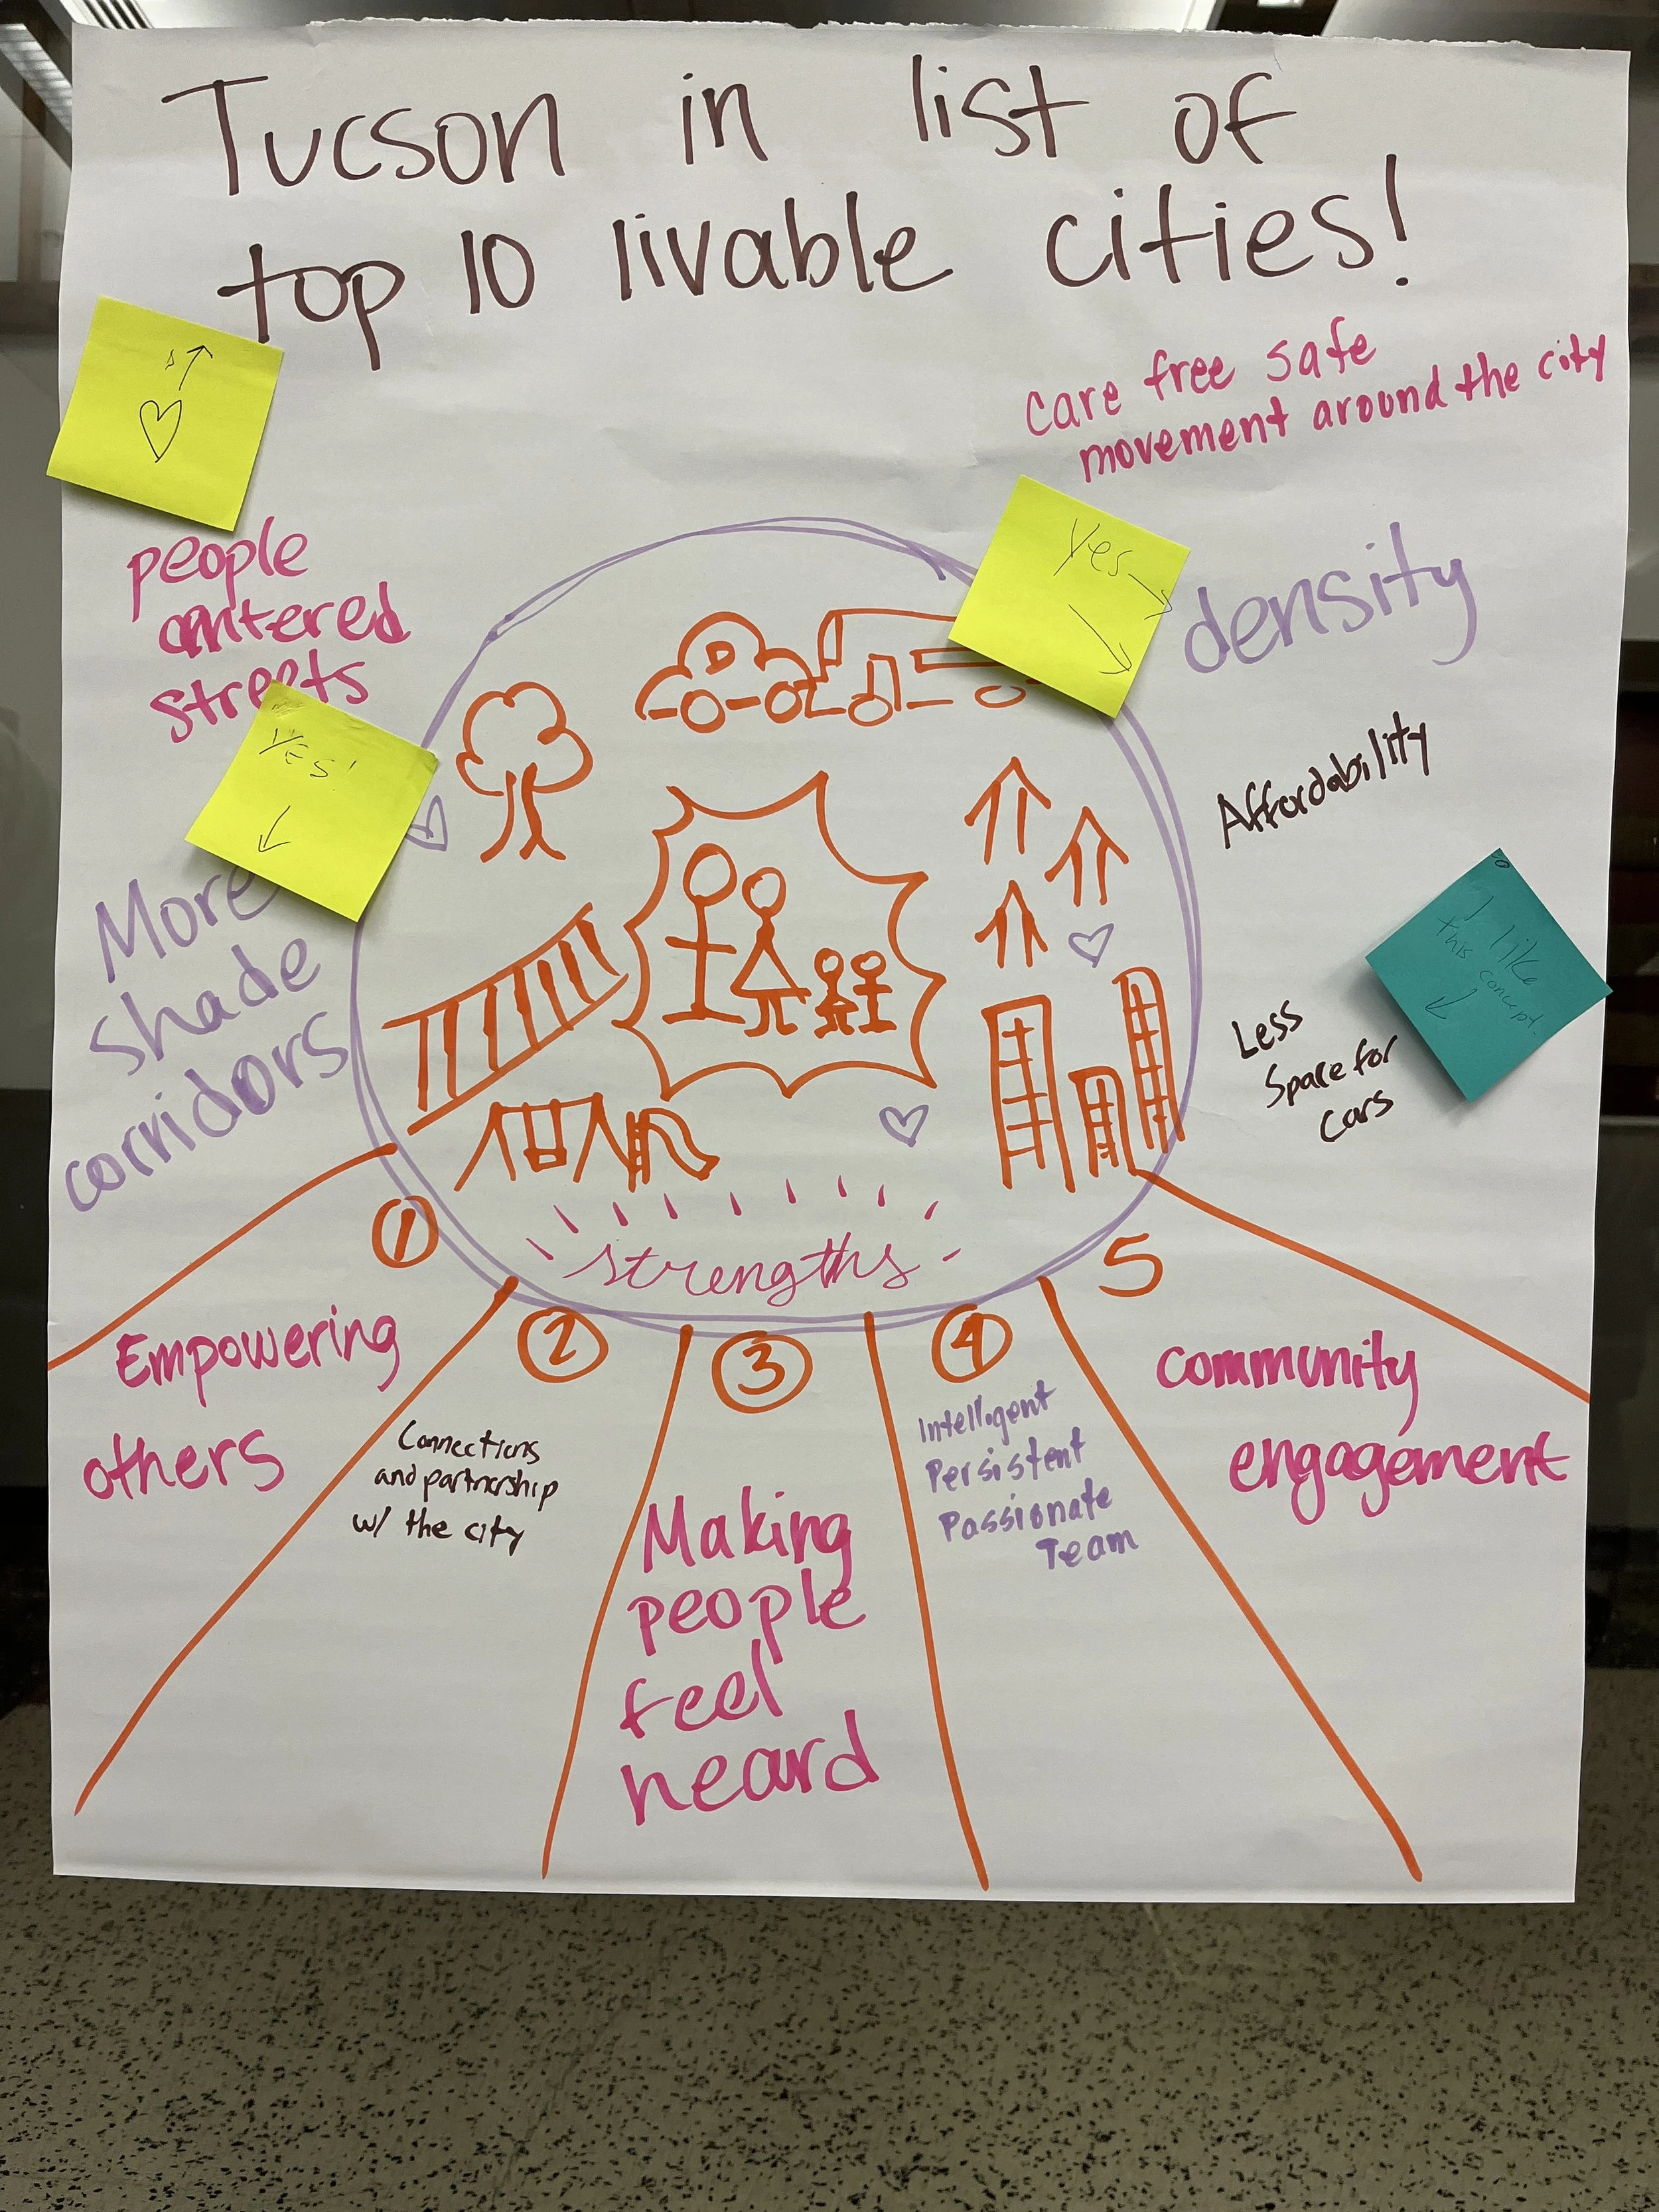 Tucson in list of
top 10 livable cities!
care free safe
movement around the city
people
centered
streets
Yes
density
YES!
Affordability
More
shade
corridors
I like
this concept.
Less
Space for
cars
D
strengths
1
Empowering
others
2
Connections
and partnership
w/ the city
3
Making
people
feel
heard
4
Intelligent
Persistent
Passionate
Team
5
community
engagement